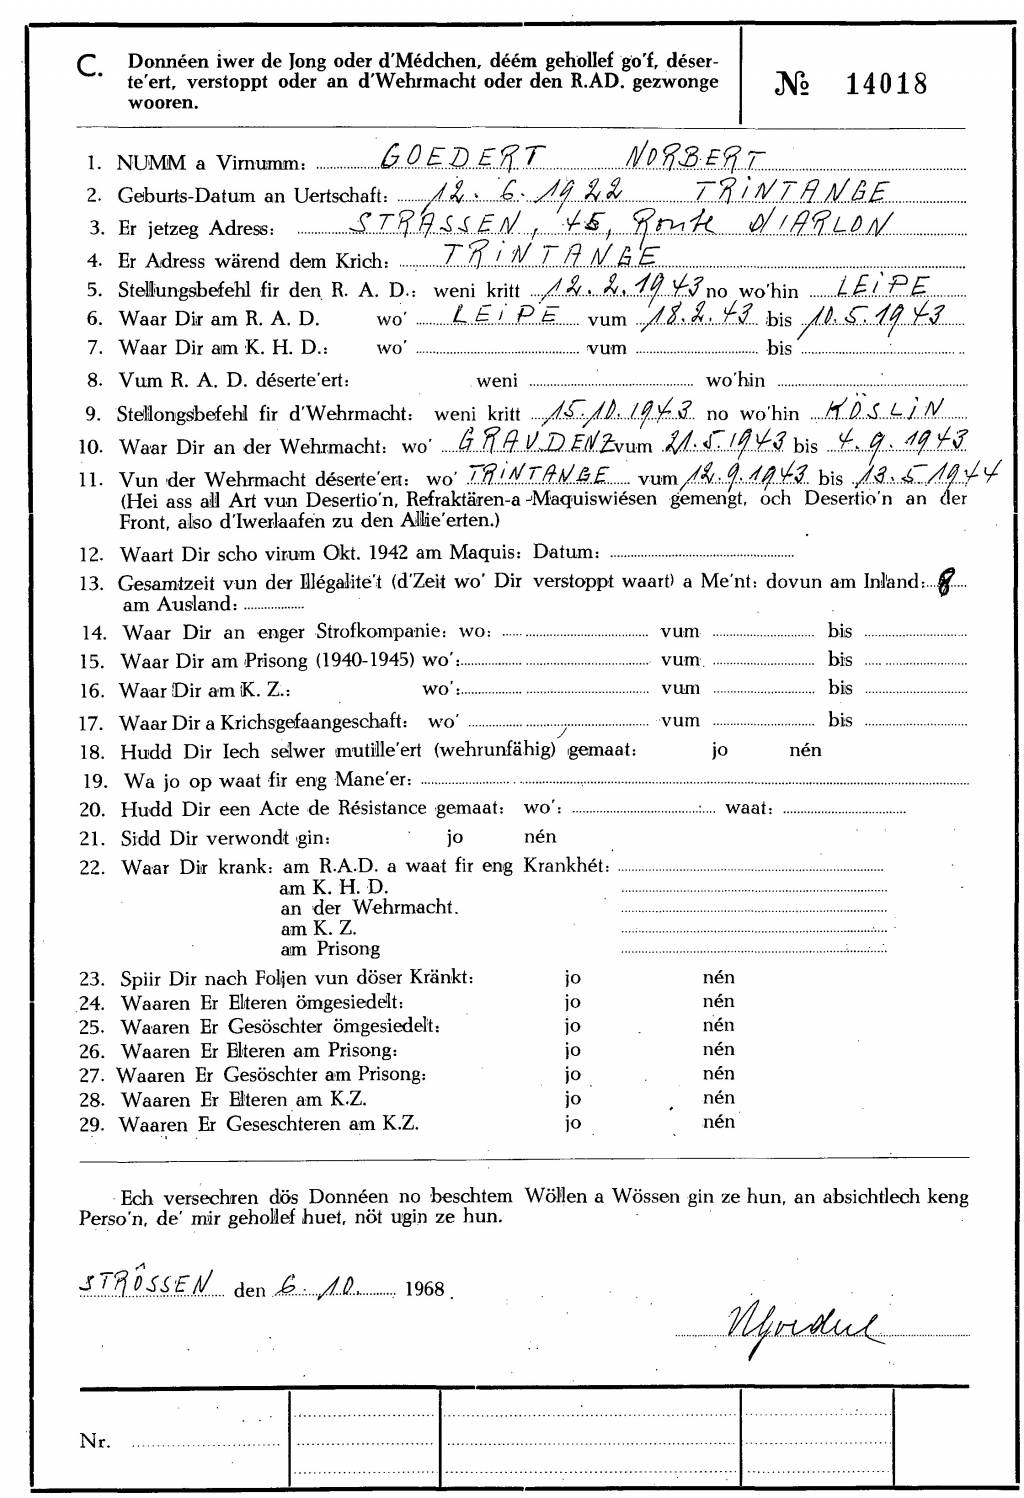 C. Donnéen iwer de Jong oder d'Médchen, déém gehollef go'f, déser-
te'ert, verstoppt oder an d'Wehrmacht oder den R.AD. gezwonge
wooren.
№ 14018
1. NUMM a Virnumm: GOEDERT NORBERT
2. Geburts-Datum an Uertschaft: 12. 6. 1922 TRINTANGE
3. Er jetzeg Adress: STRASSEN, 45, Route D'ARLON
4. Er Adress wärend dem Krich: TRINTANGE
5. Stellungsbefehl fir den R. A. D.: weni kritt 12. 2. 1943 no wo'hin LEIPE
6. Waar Dir am R. A. D. wo' LEIPE vum 18.2.43 bis 10.5.1943
7. Waar Dir am K. H. D.: wo' vum bis
8. Vum R. A. D. déserte'ert: weni wo'hin
9. Stellongsbefehl fir d'Wehrmacht: weni kritt 15.10.1943 no wo'hin KÖSLIN
10. Waar Dir an der Wehrmacht: wo' GRAUDENZ vum 21.5.1943 bis 4.9.1943
11. Vun der Wehrmacht déserte'ert: wo' TRINTANGE vum 12.9.1943 bis 13.5.1944
(Hei ass all Art vun Desertio'n, Refraktären-a-Maquiswiésen gemengt, och Desertio'n an der
Front, also d'Iwerlaafen zu den Allie'erten.)
12. Waart Dir scho virum Okt. 1942 am Maquis: Datum:
13. Gesamtzeit vun der Illégalite't (d'Zeit wo' Dir verstoppt waart) a Me'nt: dovun am Inland: 8
am Ausland:
14. Waar Dir an enger Strofkompanie: wo: vum bis
15. Waar Dir am Prisong (1940-1945) wo': vum bis
16. Waar Dir am K. Z.: wo': vum bis
17. Waar Dir a Krichsgefaangeschaft: wo' vum bis
18. Hudd Dir Iech selwer mutille'ert (wehrunfähig) gemaat: jo nén
19. Wa jo op waat fir eng Mane'er:
20. Hudd Dir een Acte de Résistance gemaat: wo': waat:
21. Sidd Dir verwondt gin: jo nén
22. Waar Dir krank: am R.A.D. a waat fir eng Krankhét:
am K. H. D.
an der Wehrmacht.
am K. Z.
am Prisong
23. Spiir Dir nach Foljen vun döser Kränkt: jo nén
24. Waaren Er Elteren ömgesiedelt: jo nén
25. Waaren Er Gesöschter ömgesiedelt: jo nén
26. Waaren Er Elteren am Prisong: jo nén
27. Waaren Er Gesöschter am Prisong: jo nén
28. Waaren Er Elteren am K.Z. jo nén
29. Waaren Er Geseschteren am K.Z. jo nén
Ech versechren dös Donnéen no beschtem Wöllen a Wössen gin ze hun, an absichtlech keng
Perso'n, de' mir gehollef huet, nöt ugin ze hun.
STRÔSSEN den 6. 10. 1968
NGoedert
Nr.